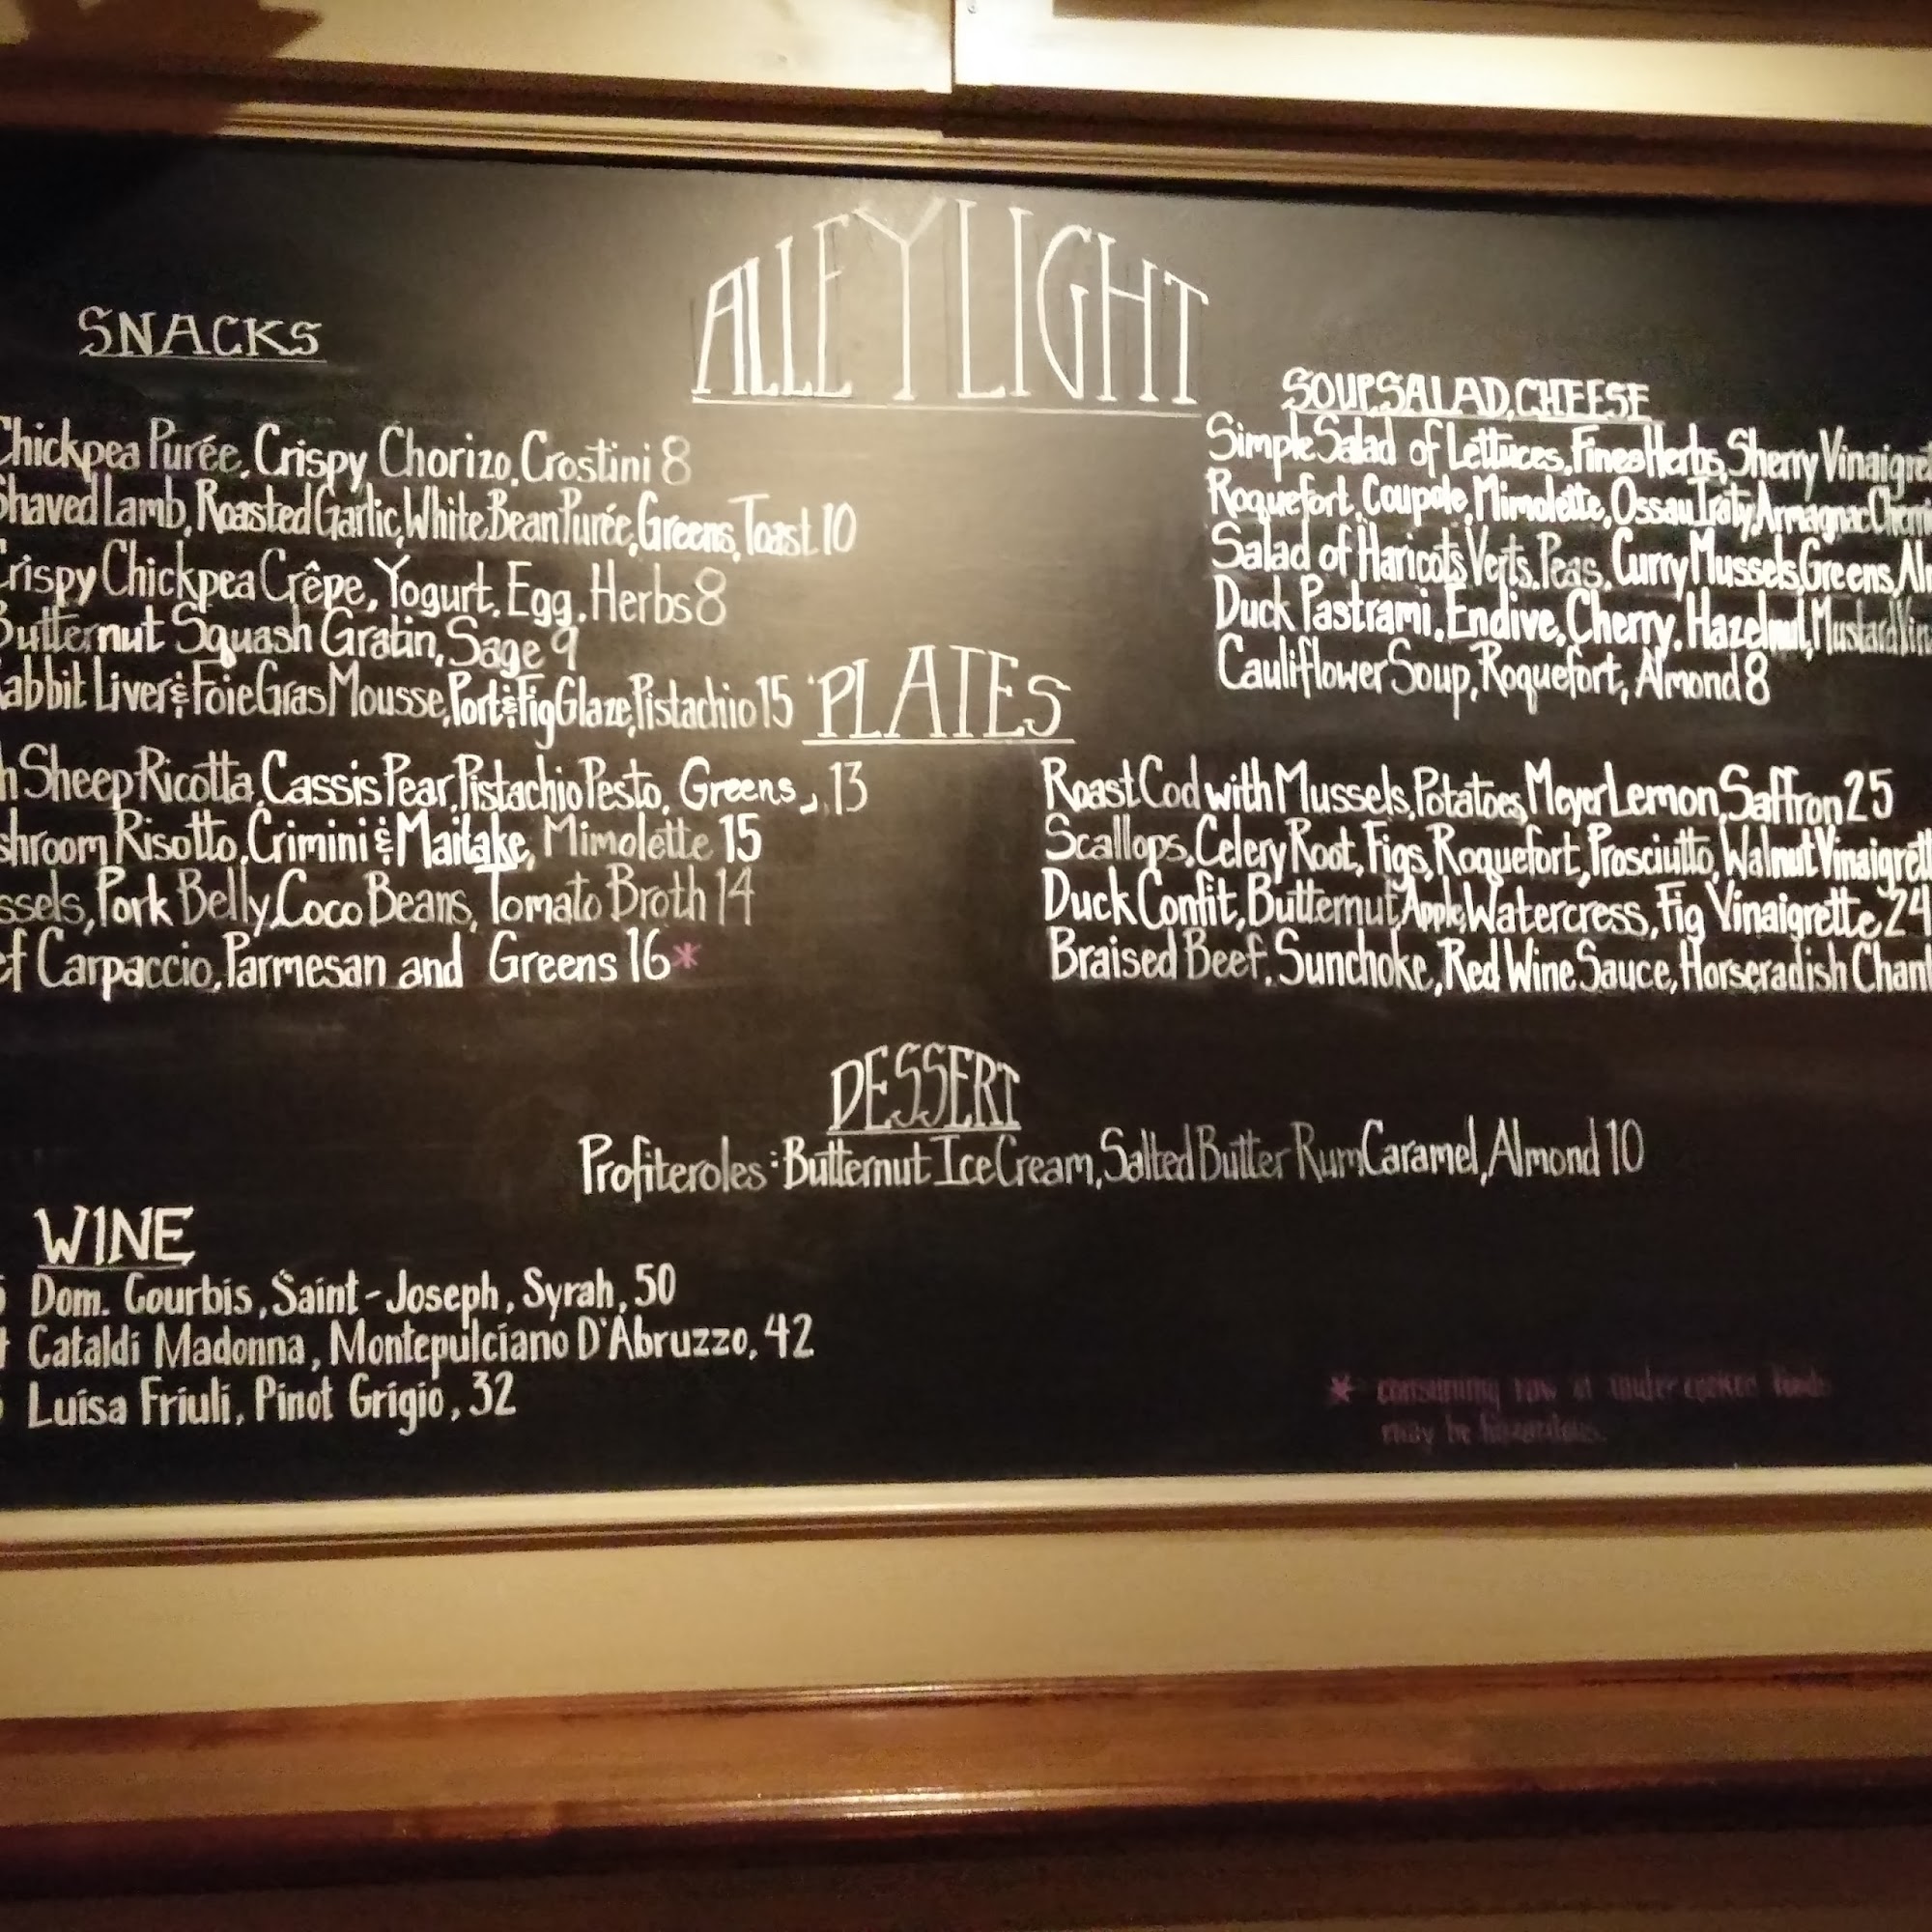 ALLEY LIGHT
SNACKS
Chickpea Purée, Crispy Chorizo, Crostini 8
Shaved Lamb, Roasted Garlic, White Bean Purée, Greens, Toast 10
Crispy Chickpea Crêpe, Yogurt, Egg, Herbs 8
Butternut Squash Gratin, Sage 9
abbit Liver & Foie Gras Mousse, Port & Fig Glaze, Pistachio 15
SOUP, SALAD, CHEESE
Simple Salad of Lettuces, Fines Herbs, Sherry Vinaigre
Roquefort, Coupole, Mimolette, Ossau Iraty, Armagnac Cherri
Salad of Haricots Verts, Peas, Curry Mussels, Greens, Al
Duck Pastrami, Endive, Cherry, Hazelnut, Mustard Vin
Cauliflower Soup, Roquefort, Almond 8
PLATES
h Sheep Ricotta, Cassis Pear, Pistachio Pesto, Greens, 13
shroom Risotto, Crimini & Maitake, Mimolette 15
ssels, Pork Belly, Coco Beans, Tomato Broth 14
ef Carpaccio, Parmesan and Greens 16*
Roast Cod with Mussels, Potatoes, Meyer Lemon, Saffron 25
Scallops, Celery Root, Figs, Roquefort, Prosciutto, Walnut Vinaigrett
Duck Confit, Butternut, Apple, Watercress, Fig Vinaigrette 24
Braised Beef, Sunchoke, Red Wine Sauce, Horseradish Chant
DESSERT
Profiteroles: Butternut Ice Cream, Salted Butter Rum Caramel, Almond 10
WINE
Dom. Gourbis, Saint-Joseph, Syrah, 50
Cataldi Madonna, Montepulciano D'Abruzzo, 42
Luisa Friuli, Pinot Grigio, 32
* consuming raw or undercooked foods
may be hazardous.